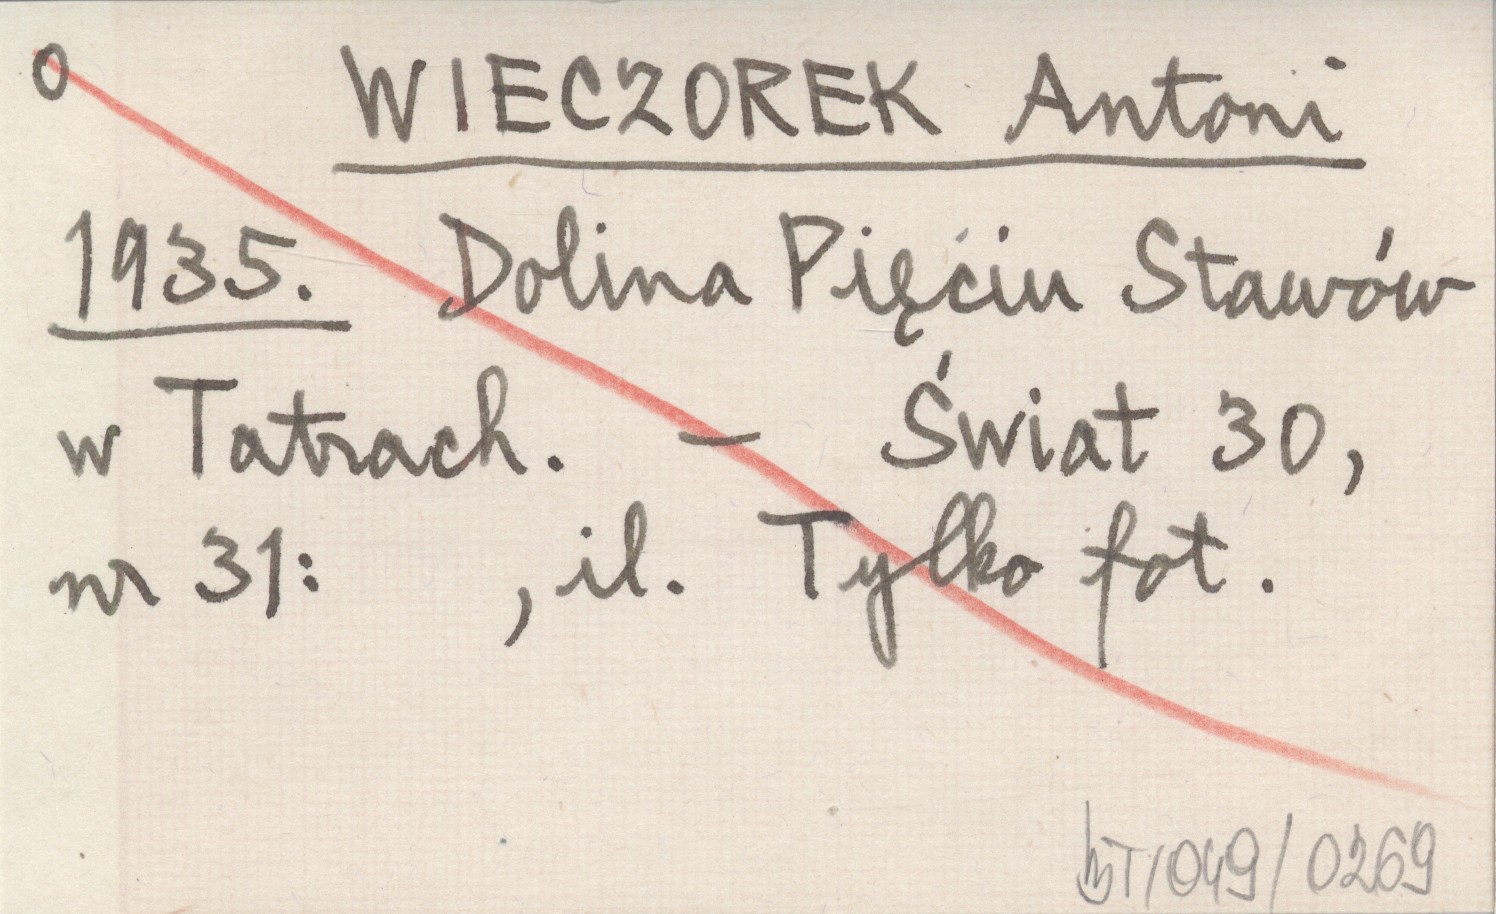 0 WIECZOREK Antoni
1935. Dolina Pięciu Stawów
w Tatrach. — Świat 30,
nr 31: , il. Tylko fot.
/049/0269